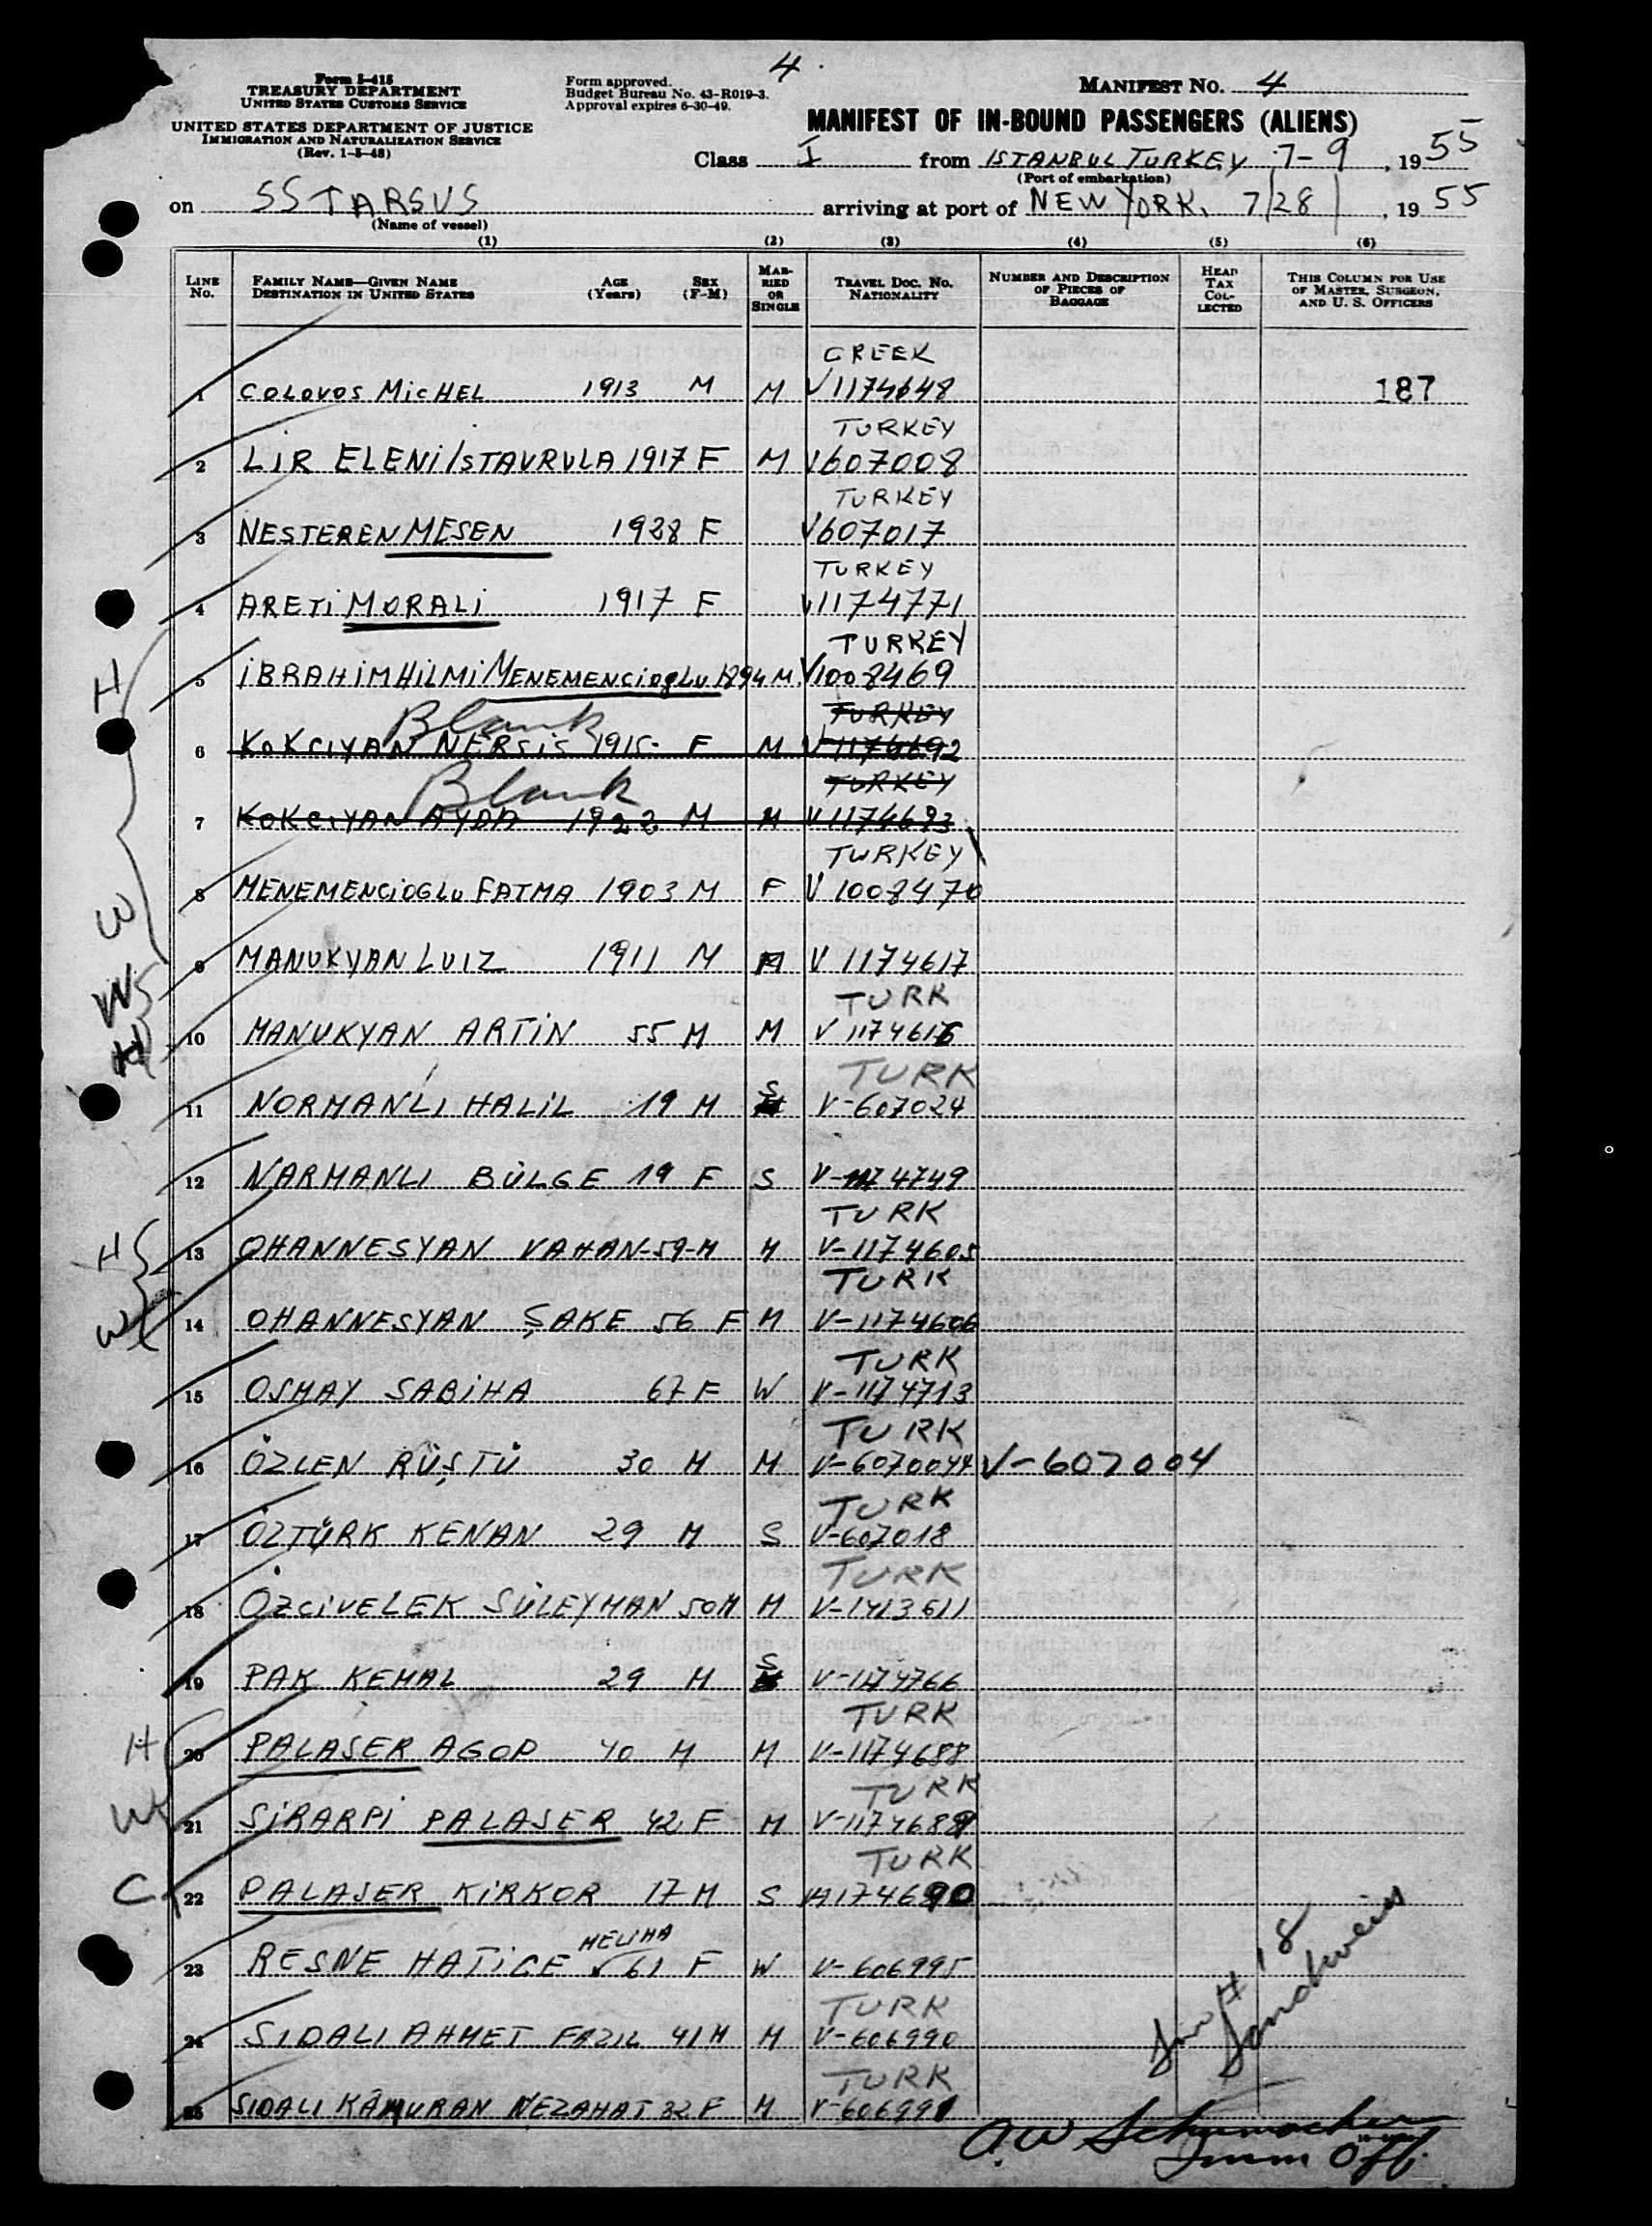 4.
Form I-415
TREASURY DEPARTMENT
UNITED STATES CUSTOMS SERVICE
UNITED STATES DEPARTMENT OF JUSTICE
IMMIGRATION AND NATURALIZATION SERVICE
(Rev. 1-5-48)
Form approved.
Budget Bureau No. 43-R019-3.
Approval expires 6-30-49.
MANIFEST NO. 4
MANIFEST OF IN-BOUND PASSENGERS (ALIENS)
Class I from ISTANBUL TURKEY 7-9, 1955
(Port of embarkation)
on SS TARSUS arriving at port of NEW YORK, 7/28/, 1955
(Name of vessel)
(1) (2) (3) (4) (5) (6)
LINE No. FAMILY NAME—GIVEN NAME DESTINATION IN UNITED STATES AGE (Years) SEX (F-M) MARRIED OR SINGLE TRAVEL DOC. NO. NATIONALITY NUMBER AND DESCRIPTION OF PIECES OF BAGGAGE HEAD TAX COLLECTED THIS COLUMN FOR USE OF MASTER, SURGEON, AND U. S. OFFICERS
GREEK
1 COLOVOS MICHEL 1913 M M V1174648 187
TURKEY
2 LİR ELENİ/STAVRULA 1917 F M V607008
TURKEY
3 NESTEREN MESEN 1928 F V607017
TURKEY
4 ARETİ MORALİ 1917 F V1174771
TURKEY
H 5 İBRAHİM HİLMİ MENEMENCİOGLU 1894 M V1008469
Blank TURKEY
6 KOKCIYAN NERSİS 1915 F M V1174692
Blank TURKEY
7 KOKCIYAN AYDA 1922 M M V1174693
TURKEY
W 8 MENEMENCİOGLU FATMA 1903 M F V 1008470
W 9 MANUKYAN LUIZ 1911 M V 1174617
TURK
H 10 MANUKYAN ARTİN 55 M M V 1174616
TURK
11 NORMANLI HALİL 19 M S V-607024
12 NARMANLI BÜLGE 19 F S V-1174749
TURK
H 13 OHANNESYAN VAHAN-59-M M V-1174605
TURK
W 14 OHANNESYAN ŞAKE 56 F M V-1174606
TURK
15 OSMAY SABİHA 67 F W V-1174713
TURK
16 ÖZLEN RÜŞTÜ 30 M M V-6070044 V-607004
TURK
17 ÖZTÜRK KENAN 29 M S V-607018
TURK
18 ÖZCİVELEK SÜLEYMAN 50 M M V-1413611
19 PAK KEMAL 29 M S V-1174766
TURK
H 20 PALASER AGOP 40 M M V-1174688
TURK
W 21 SİRARPİ PALASER 42 F M V-1174689
TURK
C 22 PALASER KİRKOR 17 M S V1174690
MELİHA
23 RESNE HATİCE 61 F W V-606995
TURK
24 SIDALI AHMET FAZIL 41 M M V-606990
TURK
25 SIDALI KÂMURAN NEZAHAT 32 F M V-606991
18
A.W. Schumacher
Imm Off.